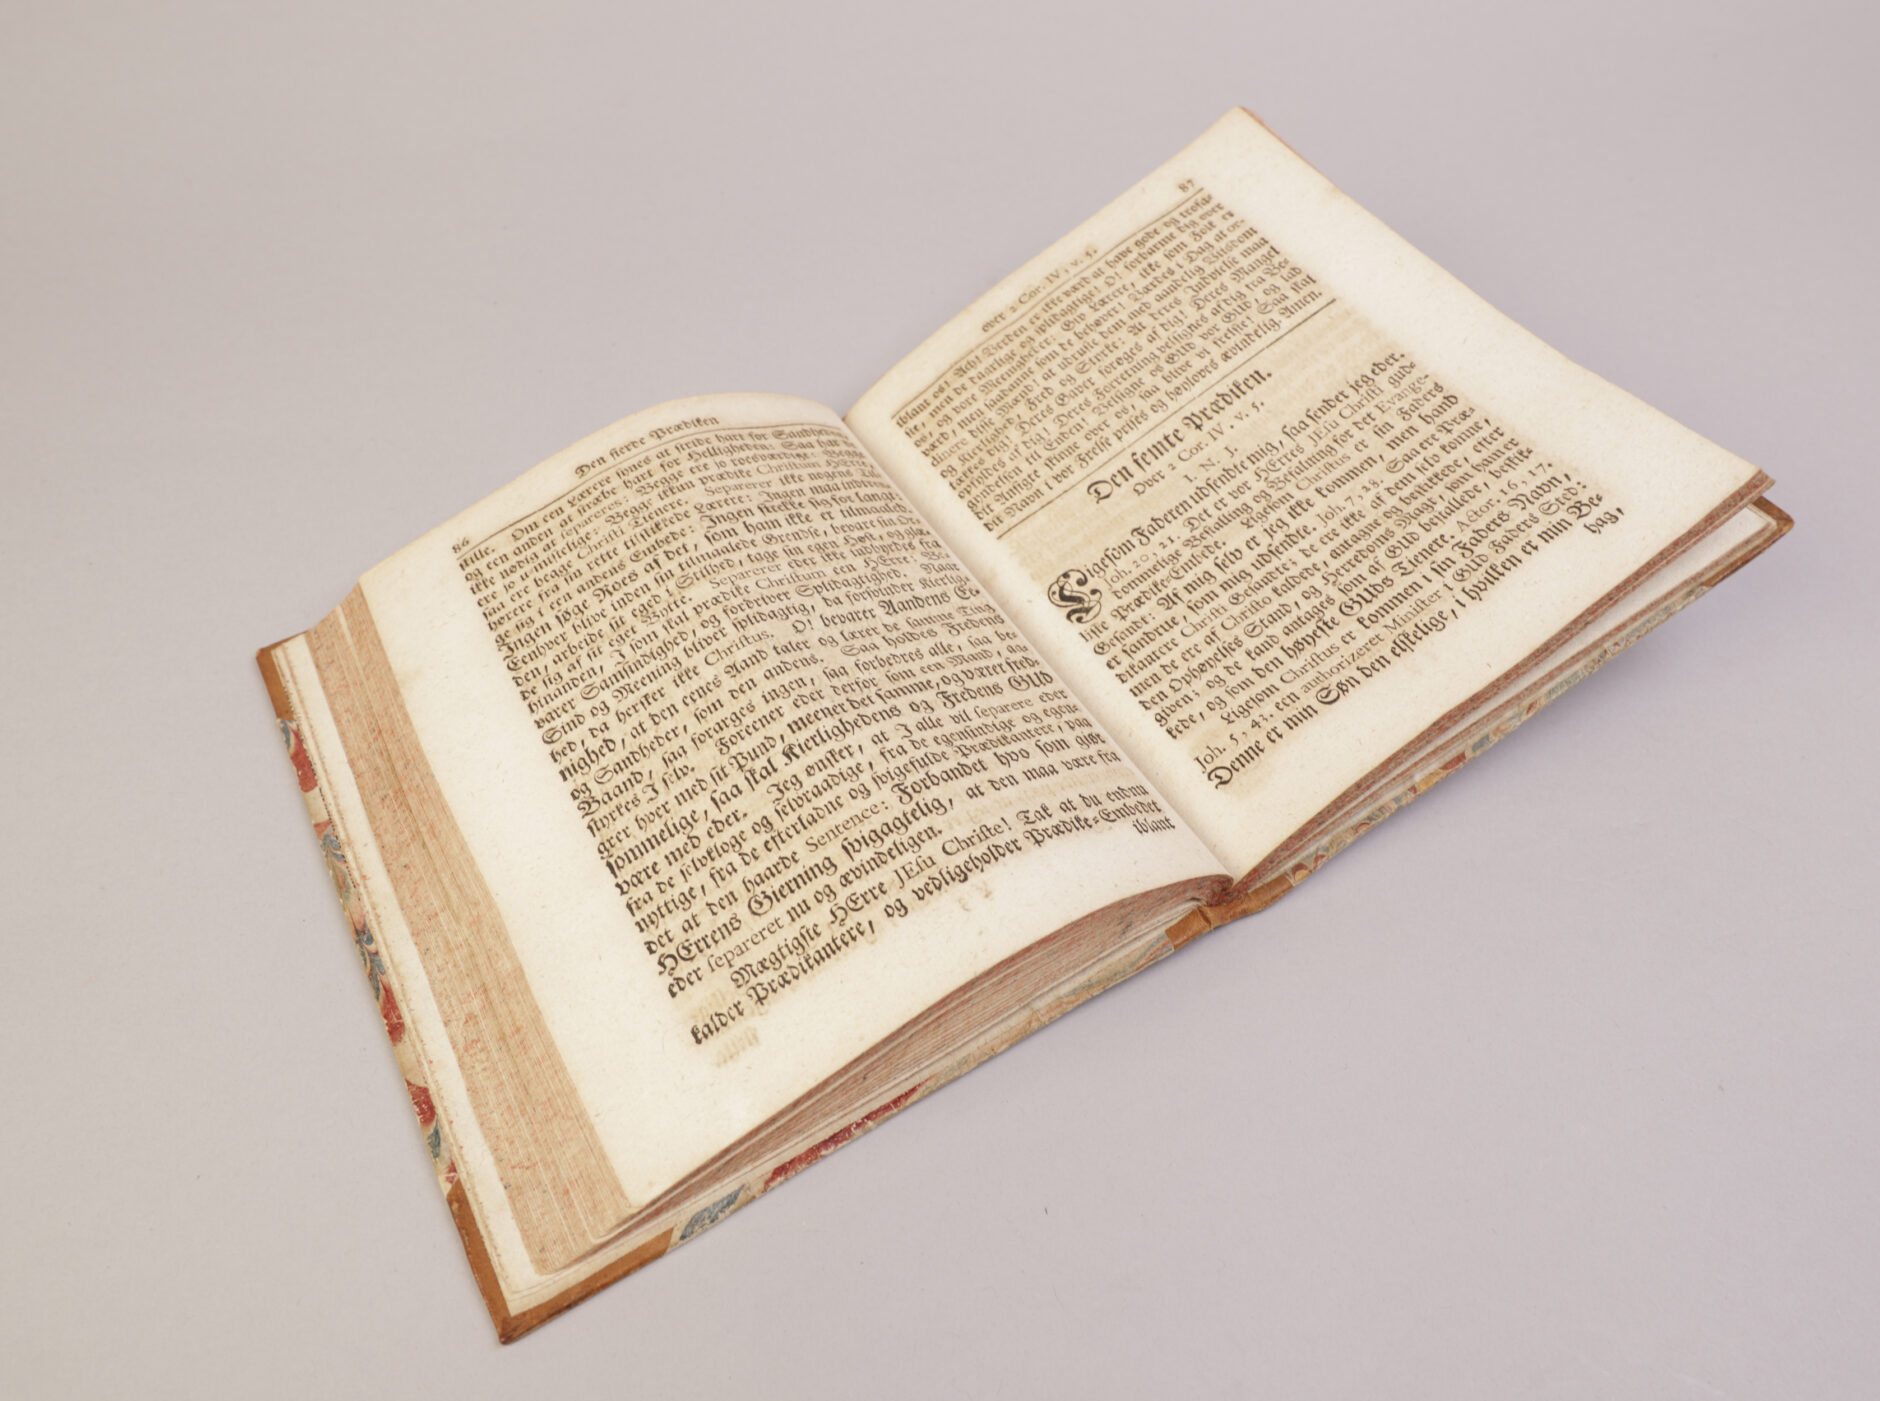 86
Den fierde Prædiken
stille. Om een Lærere synes at stride hart for Sandheden
og een anden at stræbe hart for Helligheden: Saa har in
ikke nødig at separeres: Begge ere jo roesværdige: Begge
ere jo u-mistelige: Begge ikkun prædike Christum HErre,
saa ere begge Christi Tienere. Separerer ikke nogens Til-
hørere fra sin rette tilskikkede Lærere: Ingen maa indtrenge
ge sig i een andens Embede: Ingen strekke sig for langt:
Ingen søge Roes af det, som ham ikke er tilmaaled.
Eenhver blive inden sin tilmaalede Grendse, bevare sin Or-
den, arbeide sit eget i Stilhed, tage sin egen Høst, og glæ-
de sig af sit eget Bytte. Separerer eder ikke indbyrdes fra
hinanden, I som skal prædike Christum een HErre: Be-
varer Samsindighed, og fordriver Splidagtighed. Naar
Sind og Meening bliver splidagtig, da forsvinder Kierlig-
hed, da hersker ikke Christus. O! bevarer Aandens Ee-
nighed, at den eenes Aand taler og lærer de samme Ting
og Sandheder, som den andens. Saa holdes Fredens
Baand, saa forarges ingen, saa forbedres alle, saa be-
styrkes I selv. Forener eder derfor som een Mand, aa-
grer hver med sit Pund, meener det samme, og værer fred-
sommelige, saa skal Kierlighedens og Fredens GUd
være med eder. Jeg ønsker, at I alle vil separere eder
fra de selvkloge og selvraadige, fra de egensindige og egen-
nyttige, fra de efterladne og svigefulde Prædikantere, paa
det at den haarde Sentence: Forbandet hvo som giør
HErrens Gierning svigagtelig, at den maa være fra
eder separeret nu og ævindeligen.
Mægtigste HErre JEsu Christe! Tak at du endnu
kalder Prædikantere, og vedligeholder Prædike-Embedet
iblant
over 2 Cor. IV, v. 5.
87
iblant os! Ach! Verden er ikke værd at have gode og trofa-
ste, men de daarlige og splidagtige! O! forbarme dig over
os, og vore Meenigheder: Giv Lærere, ikke som Folk er
værd, men saadanne som de behøver! Værdes i Dag at or-
dinere disse Mænd! at udruste dem med aandelig Viisdom
og Kierlighed, Fred og Styrke: At deres Indvielse maa
kærres af dig! Deres Gaver forøges af dig! Deres Mangel
opfyldes af dig! Deres Forretning velsignes af dig fra Be-
gyndelsen til Enden! Velsigne os GUd vor GUd, og lad
dit Ansigt skinne over os, saa blive vi frelste! Saa skal
dit Navn i vor Frelse prises og høyloves ævindelig. Amen.
Den femte Prædiken.
Over 2 Cor. IV. v. 5.
I. N. J.
Ligesom Faderen udsendte mig, saa sender jeg eder.
Joh. 20, 21. Det er vor HErres JEsu Christi gud-
dommelige Befalling og Befalning for det Evange-
liske Prædike-Embede. Ligesom Christus er sin Faders
Gesandt: Af mig selv er jeg ikke kommen, men hand
er sandrue, som mig udsendte. Joh. 7, 28. Saa ere Præ-
dikantere Christi Gesanter; de ere ikke af dem selv komne,
men de ere af Christo kaldede, antagne og beskikkede, efter
den Ophøyelses Stand, og Herredoms Magt, som hannem er
given; og de kand antages som af GUd bestallede, bestik-
kede, og som den høyeste GUds Tienere. Actor. 16, 17.
Ligesom Christus er kommen i sin Faders Navn,
Joh. 5, 43. een authorizeret Minister i GUd Faders Sted:
Denne er min Søn den elskelige, i hvilken er min Be-
hag,